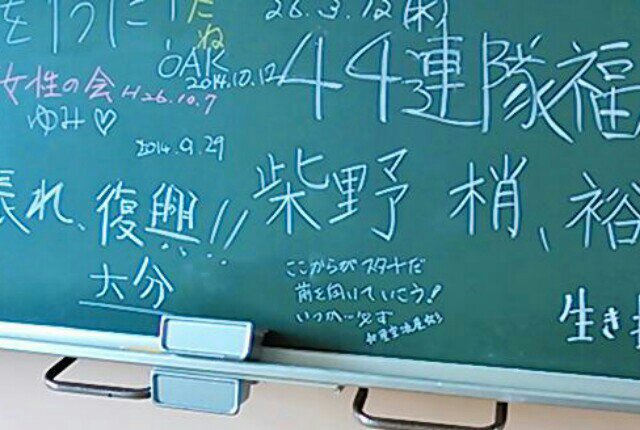 を1つに!
だね
26.3.12(水)
OAK
2014.10.12
女性の会 H26.10.7
ゆみ♡
44連隊福
2014.9.29
れ、復興!!
柴野 梢、裕
大分
ここからがスタートだ
前を向いていこう!
いつか…必ず
生き